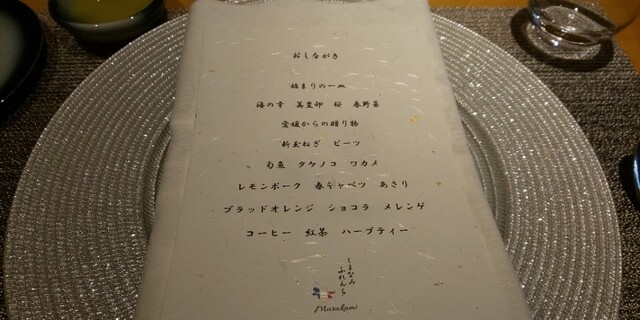 おしながき
始まりの一皿
海の幸 美豊卵 桜 春野菜
愛媛からの贈り物
新玉ねぎ ビーツ
旬魚 タケノコ ワカメ
レモンポーク 春キャベツ あさり
ブラッドオレンジ ショコラ メレンゲ
コーヒー 紅茶 ハーブティー
しまなみ
ふれんち
Murakami